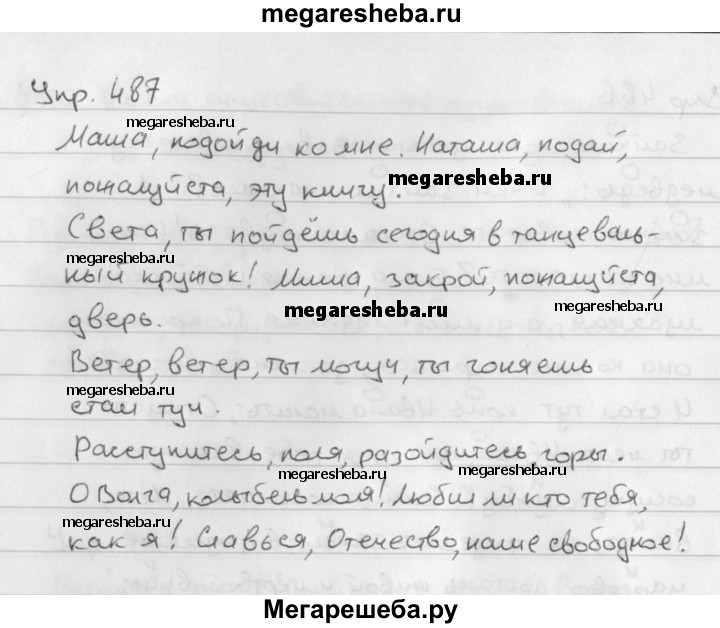 megaresheba.ru
Упр. 487
megaresheba.ru
Маша, подойди ко мне. Наташа, подай,
пожалуйста, эту книгу.
megaresheba.ru
Света, ты пойдёшь сегодня в танцеваль-
ный кружок! Миша, закрой, пожалуйста,
megaresheba.ru
megaresheba.ru
megaresheba.ru
дверь.
Ветер, ветер, ты могуч, ты гоняешь
megaresheba.ru
стаи туч.
Расступитесь, поля, разойдитесь горы.
megaresheba.ru
megaresheba.ru
О Волга, колыбель моя! Любил ли кто тебя,
megaresheba.ru
как я! Славься, Отечество, наше свободное!
Мегарешеба.ру